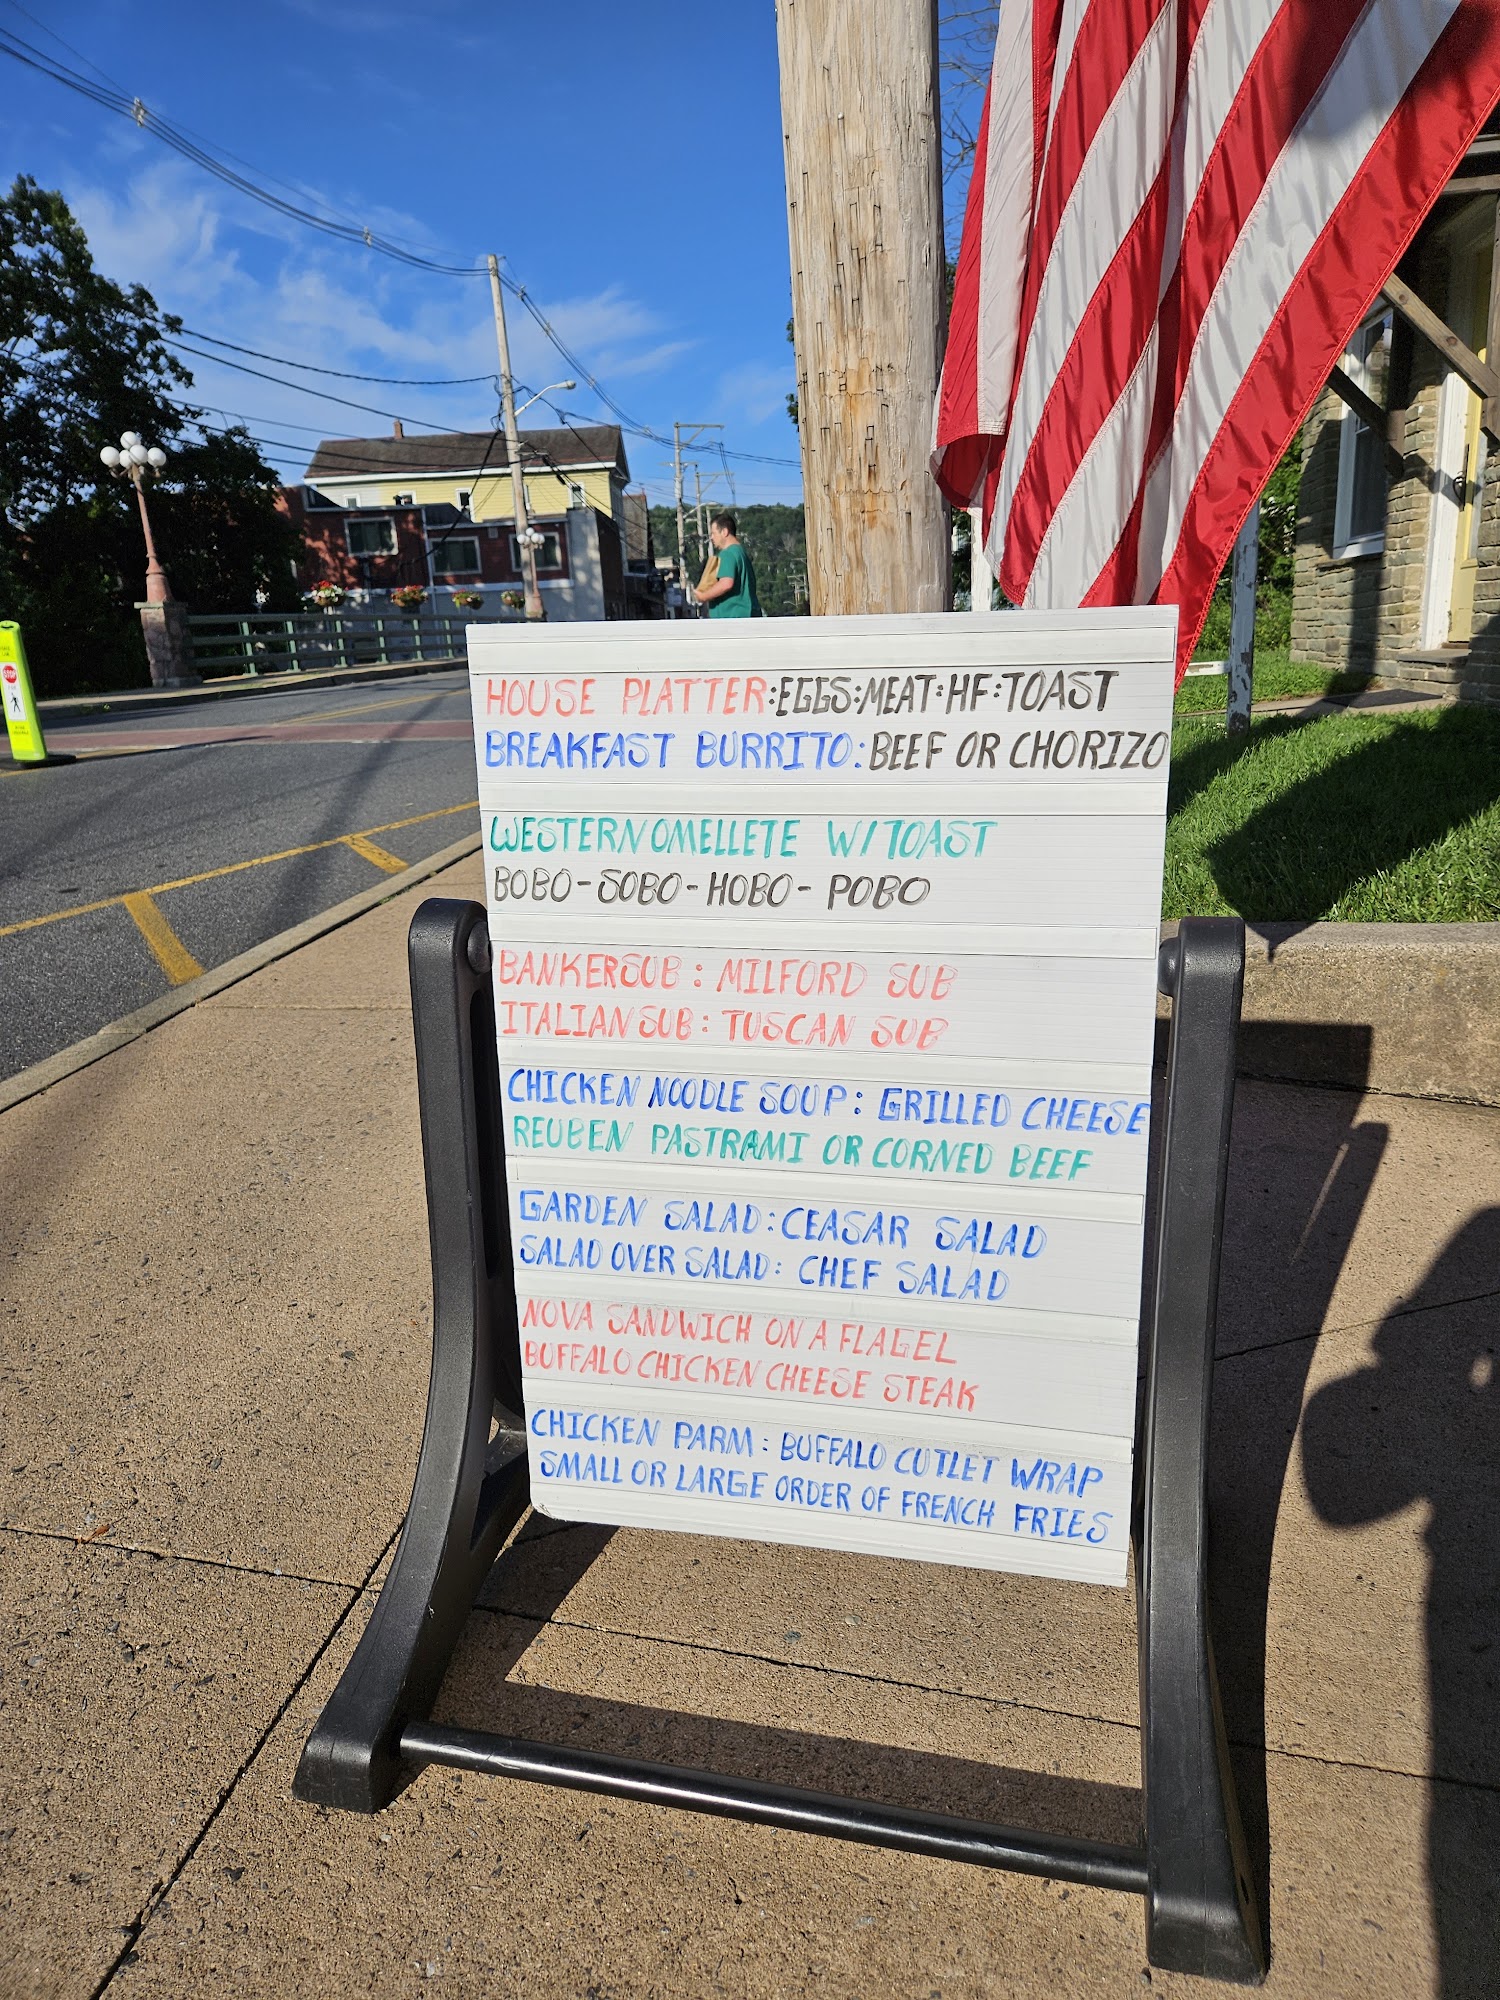 HOUSE PLATTER:EGGS:MEAT:HF:TOAST
BREAKFAST BURRITO:BEEF OR CHORIZO
WESTERN OMELLETE W/TOAST
BOBO-SOBO-HOBO-POBO
BANKER SUB: MILFORD SUB
ITALIAN SUB: TUSCAN SUB
CHICKEN NOODLE SOUP: GRILLED CHEESE
REUBEN PASTRAMI OR CORNED BEEF
GARDEN SALAD:CEASAR SALAD
SALAD OVER SALAD: CHEF SALAD
NOVA SANDWICH ON A FLAGEL
BUFFALO CHICKEN CHEESE STEAK
CHICKEN PARM: BUFFALO CUTLET WRAP
SMALL OR LARGE ORDER OF FRENCH FRIES
STOP